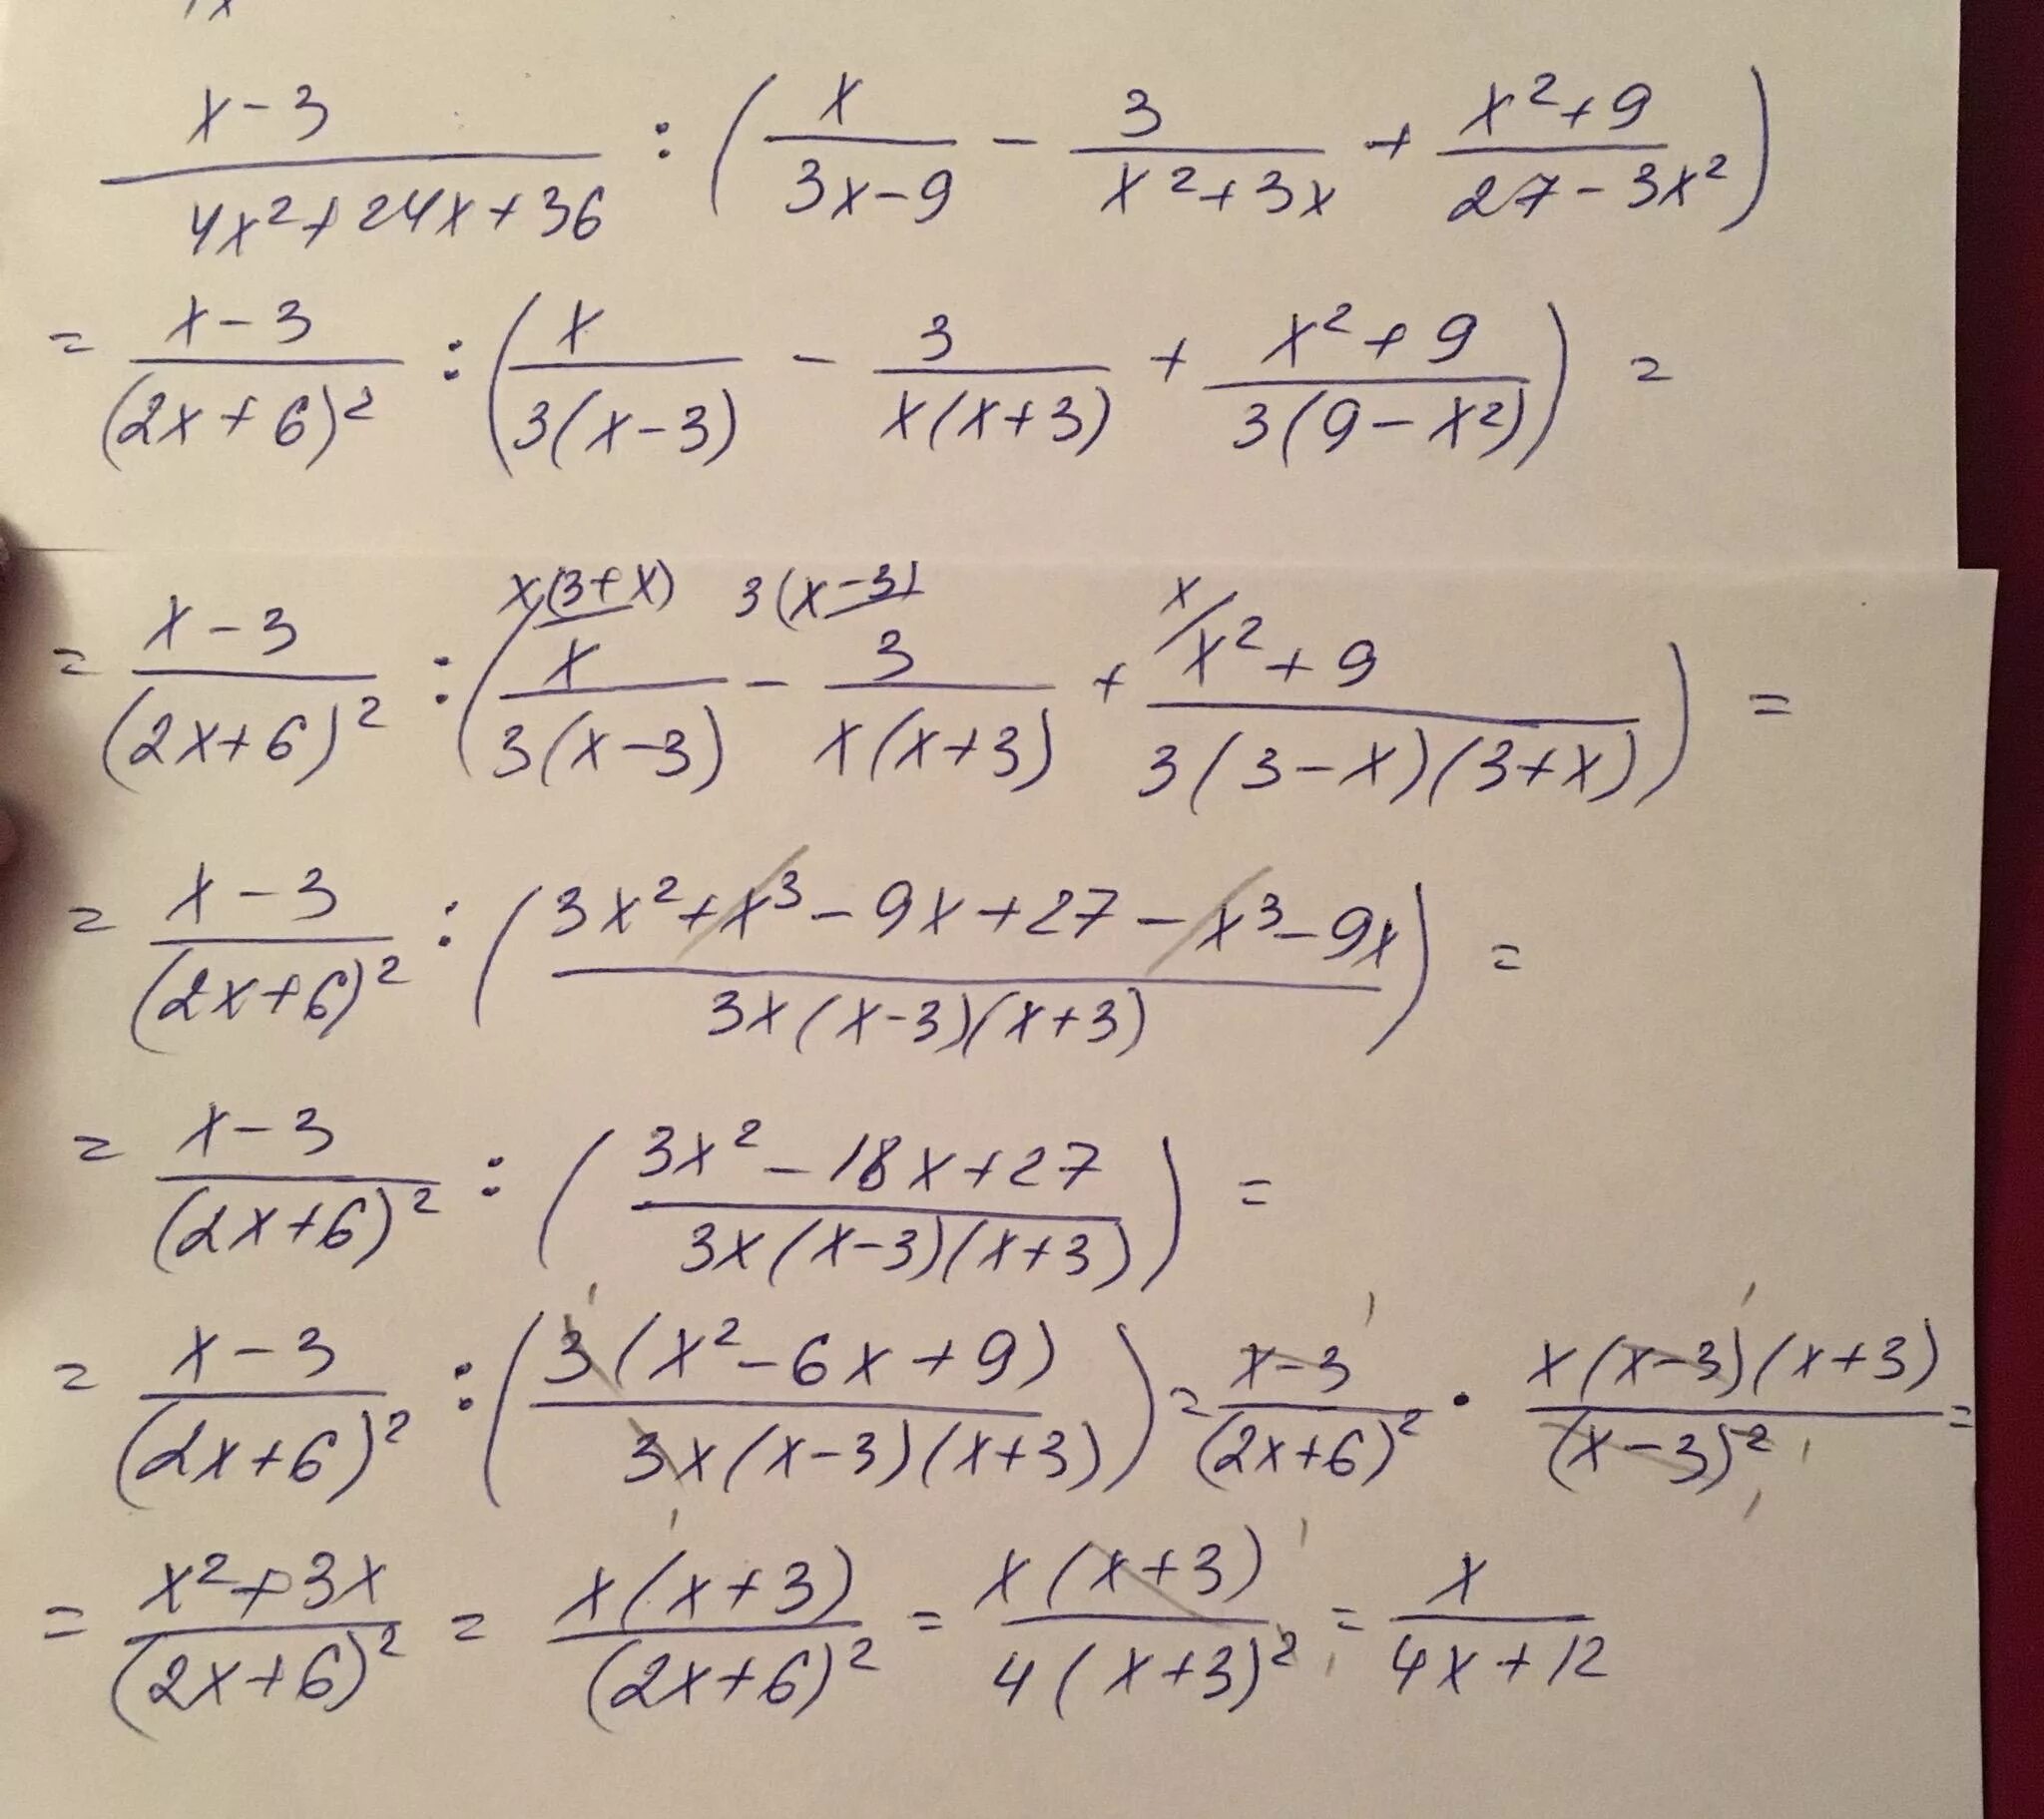 x-3 / (4x²+24x+36) : ( x/(3x-9) - 3/(x²+3x) + (x²+9)/(27-3x²) )
= (x-3)/(2x+6)² : ( x/(3(x-3)) - 3/(x(x+3)) + (x²+9)/(3(9-x²)) ) =
x(3+x) 3(x-3) x
= (x-3)/(2x+6)² : ( x/(3(x-3)) - 3/(x(x+3)) + (x²+9)/(3(3-x)(3+x)) ) =
= (x-3)/(2x+6)² : ( (3x²+x³-9x+27-x³-9x)/(3x(x-3)(x+3)) ) =
= (x-3)/(2x+6)² : ( (3x²-18x+27)/(3x(x-3)(x+3)) ) =
= (x-3)/(2x+6)² : ( 3(x²-6x+9)/(3x(x-3)(x+3)) ) = (x-3)/(2x+6)² · x(x-3)(x+3)/(x-3)² =
= (x²+3x)/(2x+6)² = x(x+3)/(2x+6)² = x(x+3)/(4(x+3)²) = x/(4x+12)